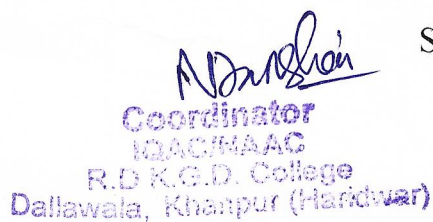 S
Coordinator
IQAC/NAAC
R.D K.G.D. College
Dallawala, Khanpur (Haridwar)